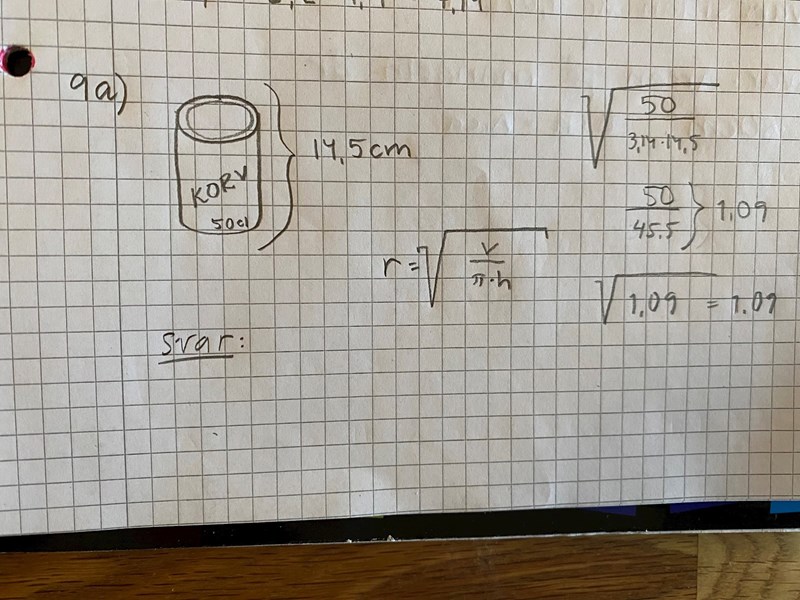 9a)
KORV
50cl
14,5cm
r=√(v/π·h)
√(50/3,14·14,5)
50/45.5 } 1,09
√1,09 = 1.09
Svar: